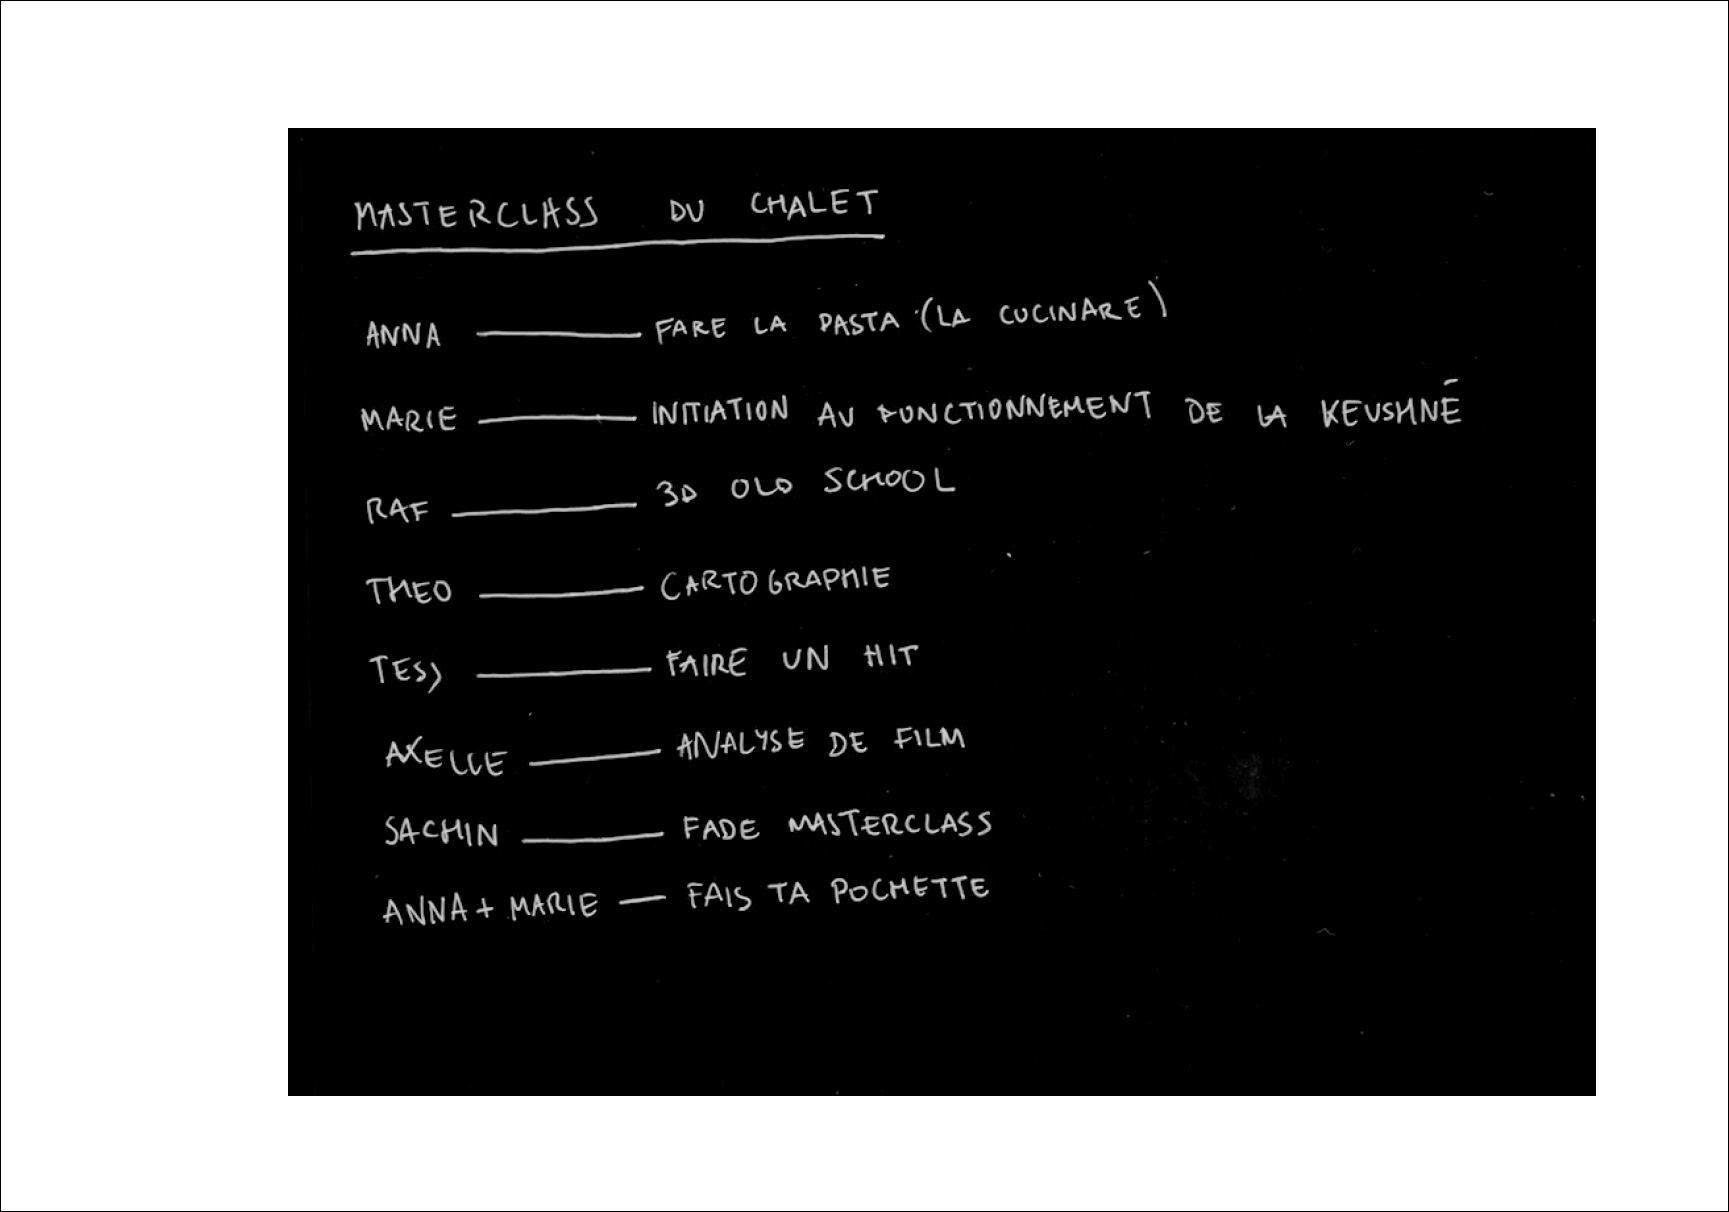 MASTERCLASS DU CHALET
ANNA — FARE LA PASTA (LA CUCINARE)
MARIE — INITIATION AU FONCTIONNEMENT DE LA KEUSHNÉ
RAF — 3D OLD SCHOOL
THEO — CARTOGRAPHIE
TESS — FAIRE UN HIT
AXELLE — ANALYSE DE FILM
SACHIN — FADE MASTERCLASS
ANNA + MARIE — FAIS TA POCHETTE